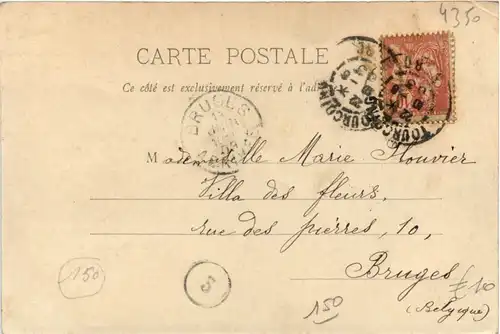 4350
CARTE POSTALE
Ce côté est exclusivement réservé à l'adr
TOURCOING
BRUGES
Mademoiselle Marie Flouvier
Villa des fleurs,
rue des pierres, 10,
Bruges
(Belgique)
£10
150
5
150